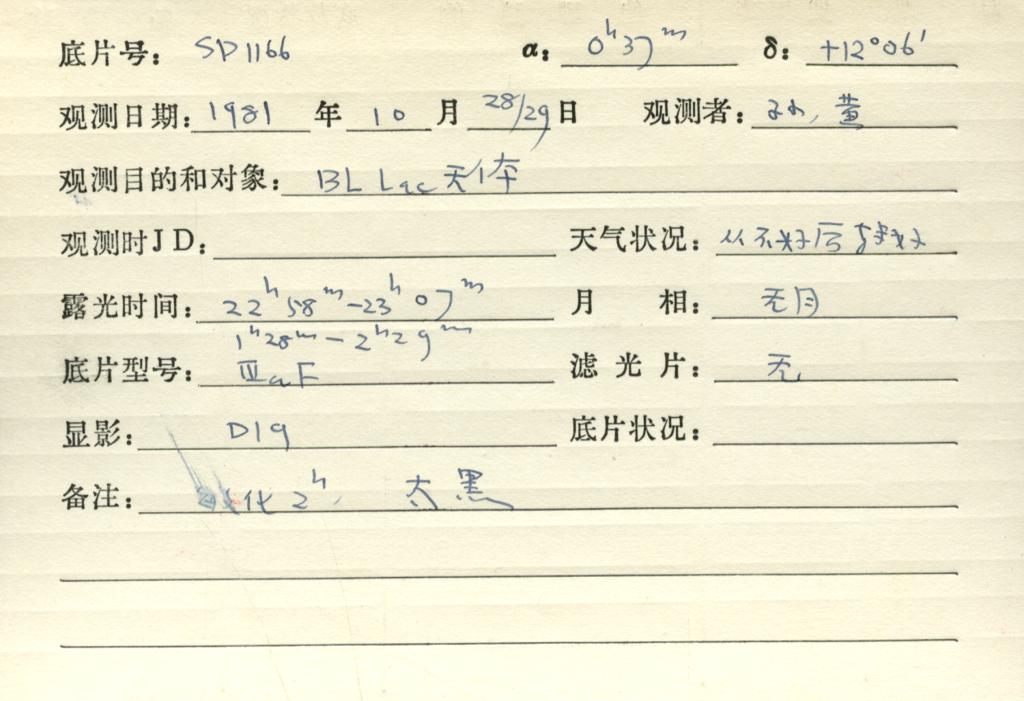 底片号： SP1166 α： 0ʰ37ᵐ δ： +12°06′
观测日期： 1981 年 10 月 28/29 日 观测者： 孙, 黄
观测目的和对象： BL Lac 天体
观测时JD： 天气状况： 从不好后转好
露光时间： 22ʰ58ᵐ-23ʰ07ᵐ 月 相： 无月
1ʰ28ᵐ-2ʰ29ᵐ
底片型号： ⅢaF 滤光片： 无
显影： D19 底片状况：
备注： 敏化2ʰ, 太黑